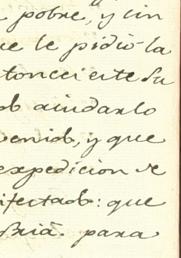 pobre, y sin
ue le pidió la
tonces este Su
ob aiudarlo
venido, y que
expedicion se
ifectado: que
para